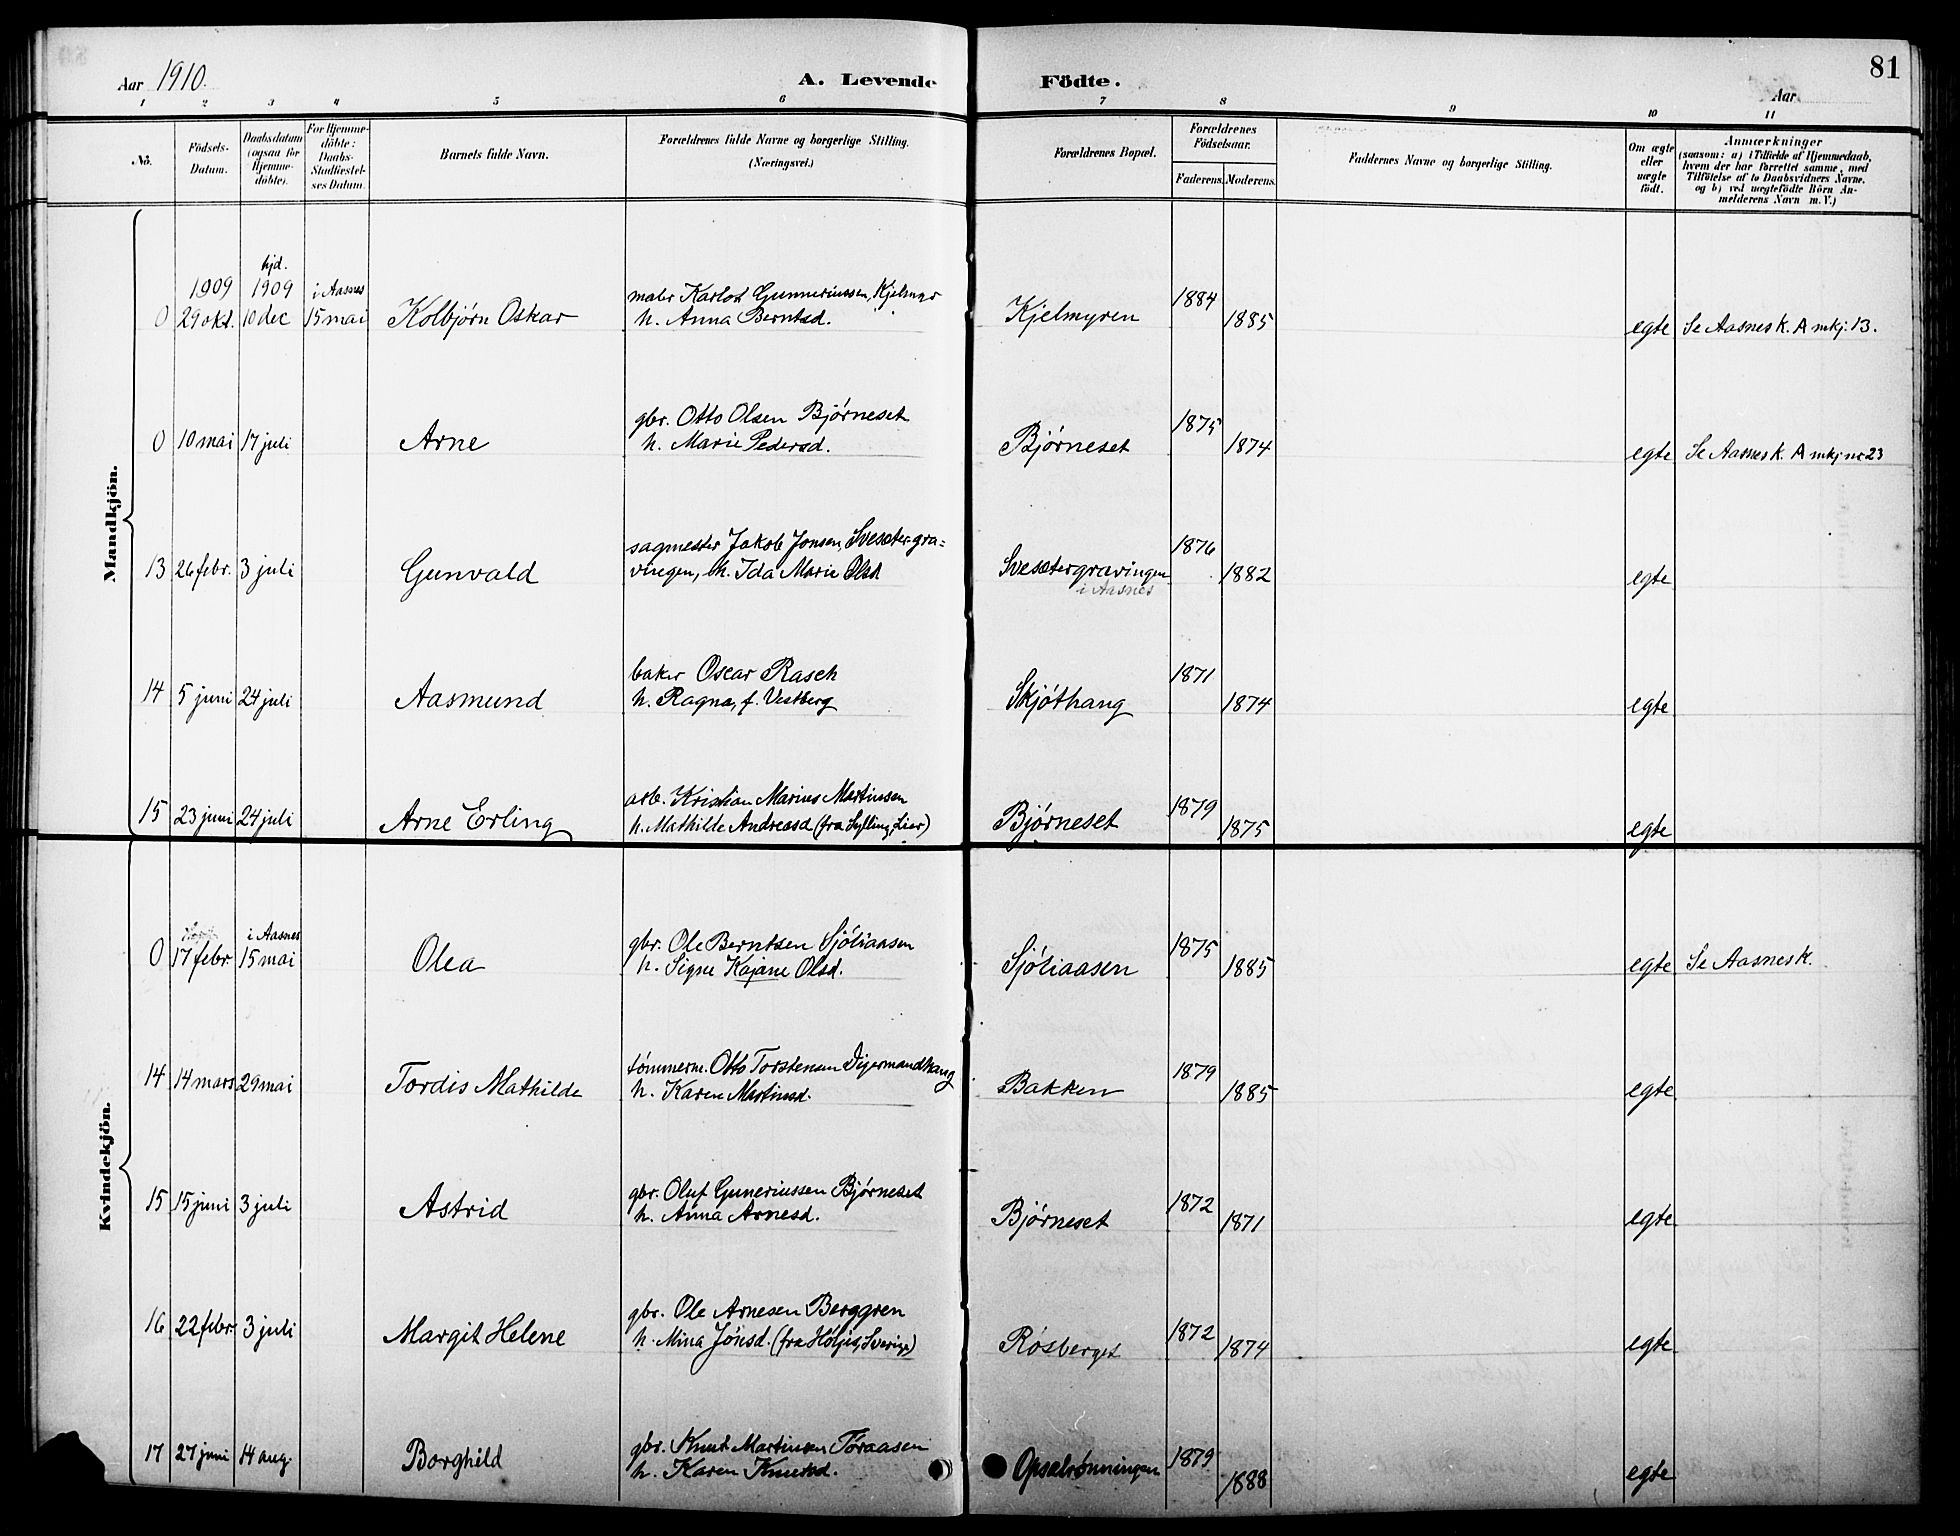 Aar 1910.
A. Levende Födte.
81
Aar
1 2 3 4 5 6 7 8 9 10 11
No.
Födsels-Datum.
Daabsdatum (ogsaa for Hjemme-döbte).
For Hjemme-döbte: Daabs-Stadfæstel-ses Datum.
Barnets fulde Navn.
Forældrenes fulde Navne og borgerlige Stilling. (Næringsvei.)
Forældrenes Bopæl.
Forældrenes Födselsaar.
Faderens. Moderens.
Faddernes Navne og borgerlige Stilling.
Om ægte eller uægte födt.
Anmærkninger
(saasom: a) i Tilfælde af Hjemmedaab,
hvem der har forrettet samme, med
Tilföielse af to Daabsvidners Navne,
og b) ved uægtefödte Börn An-
melderens Navn m. V.)
Mandkjön.
hjd.
1909 1909 i Aasnes maler Karlot Gunneriussen, Kjelmyr 1884
0 29 okt. 10 dec 15 mai Kolbjørn Oskar h. Anna Berntsd. Kjelmyren 1885 egte Se Aasnes k. A mkj. 13.
gbr. Otto Olsen Bjørneset 1875
0 10 mai 17 juli Arne h. Marie Pedersd. Bjørneset 1874 egte Se Aasnes k. A mkj nr 23
sagmester Jakob Jonsen, Svesæter gra= 1876
13 26 febr. 3 juli Gunvald vingen, h. Ida Marie Olsd Svesætergravingen 1882 egte
i Aasnes
baker Oscar Rasch 1871
14 5 juni 24 juli Aasmund h. Ragna, f. Vestberg Skjøthaug 1874 egte
arb. Kristian Marius Martinsen 1879
15 23 juni 24 juli Arne Erling h. Mathilde Andreasd (fra Sylling, Lier) Bjørneset 1875 egte
Kvindekjön.
i Aasnes gbr. Ole Berntsen Sjøliaasen 1875
0 17 febr. 15 mai Olea h. Signe Kajane Olsd. Sjøliaasen 1885 egte Se Aasnes k.
tømmerm. Otto Torstensen Digermandhaug 1879
14 14 mars 29 mai Tordis Mathilde h. Karen Martinsd. Bakken 1885 egte
gbr. Oluf Guneriussen Bjørneset 1872
15 15 juni 3 juli Astrid h. Anna Arnesd. Bjørneset 1871 egte
gbr. Ole Arnesen Berggren 1872
16 22 febr. 3 juli Margit Helene h. Mina Jónsd. (fra Høljes, Sverige) Røsberget 1874 egte
gbr. Knut Martinsen Tøraasen 1879
17 27 juni 14 aug. Borghild h. Karen Knutsd. Opsalrønningen 1888 egte